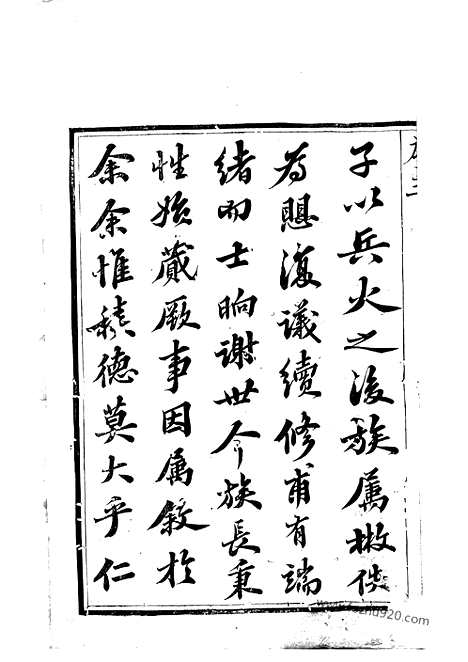 子以兵火之後族属散佚
為愳復議續修甫有端
緒而士晌謝世今族長秉
性始蕆厥事因属敘於
余余惟積德莫大乎仁